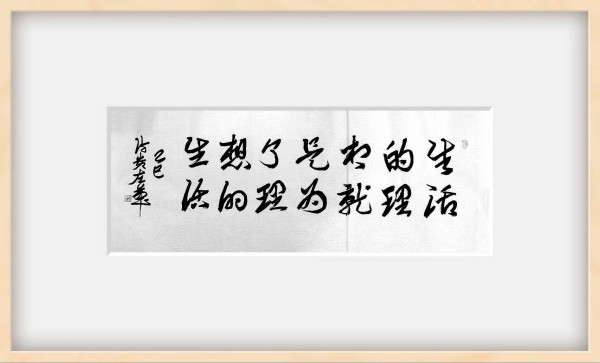 生活
的理
想就
是为
了理
想的
生活
乙巳